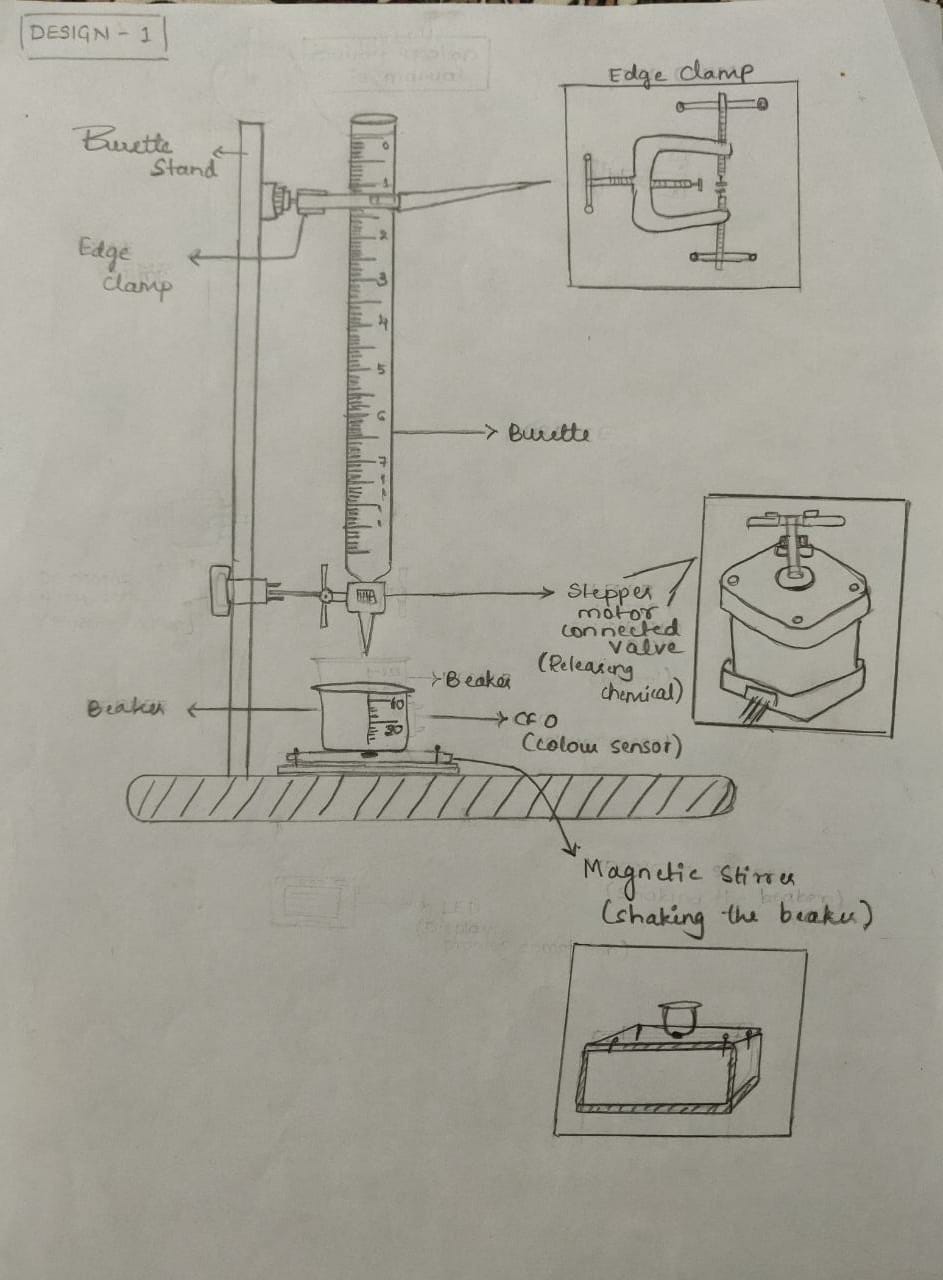 DESIGN - 1
Edge Clamp
Burette
Stand
Edge
Clamp
0
1
2
3
4
5
6
7
Burette
Stepper
motor
connected
valve
(Releasing
chemical)
Beaker
Beaker
(colour sensor)
Magnetic Stirrer
(shaking the beaker)